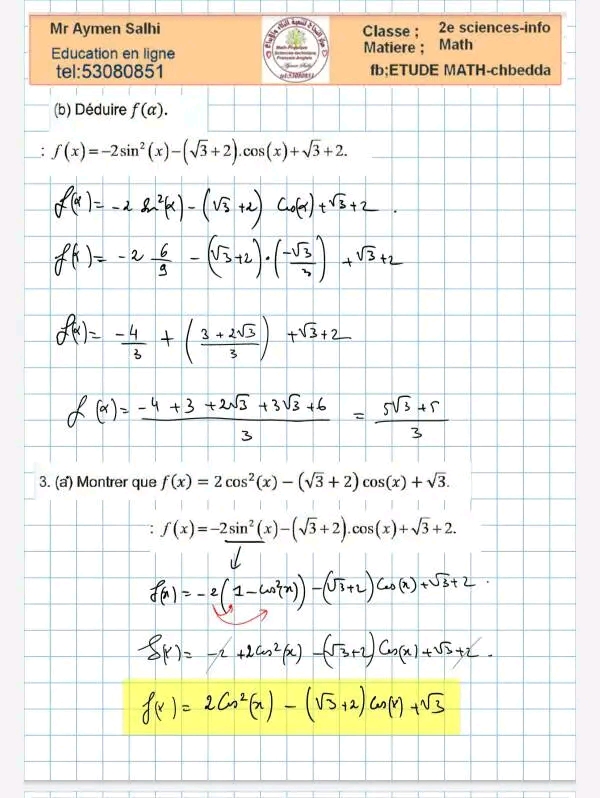 Mr Aymen Salhi
Education en ligne
tel:53080851
Classe ; 2e sciences-info
Matiere ; Math
fb;ETUDE MATH-chbedda
(b) Déduire f(α).
: f(x)=−2sin²(x)−(√3+2).cos(x)+√3+2.
f(α) = −2 sin²(α) − (√3+2) cos(α)+√3+2.
f(α) = −2 6/9 − (√3+2)•(−√3/3) +√3+2
f(α) = −4/3 + (3+2√3/3) +√3+2
f(α) = −4+3+2√3+3√3+6/3 = 5√3+5/3
3. (a) Montrer que f(x) = 2 cos²(x) − (√3 + 2) cos(x) + √3.
: f(x)=−2sin²(x)−(√3+2).cos(x)+√3+2.
f(x) = −2(1−cos²(x))−(√3+2)cos(x)+√3+2.
f(x) = −2+2cos²(x)−(√3+2)cos(x)+√3+2.
f(x) = 2cos²(x) − (√3+2)cos(x)+√3